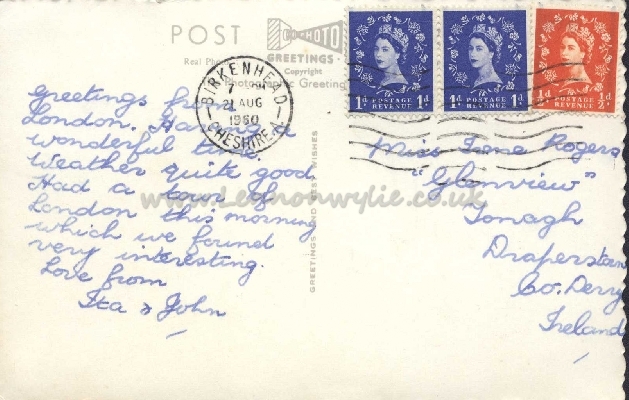 POST
CO-PHOTO
GREETINGS
Real Pho
Copyright
Photographic Greeting
BIRKENHEAD
7 PM
21 AUG
1960
CHESHIRE
1D POSTAGE REVENUE 1D
1D POSTAGE REVENUE 1D
½D POSTAGE REVENUE ½D
Greetings from
London. Having a
wonderful time.
Weather quite good
Had a tour of
London this morning
which we found
very interesting.
Love from
Ita & John
GREETINGS AND BEST WISHES
www.Lennonwylie.co.uk
Miss Irene Rogers
"Glenview"
Tonagh
Draperstown
Co. Derry
Ireland